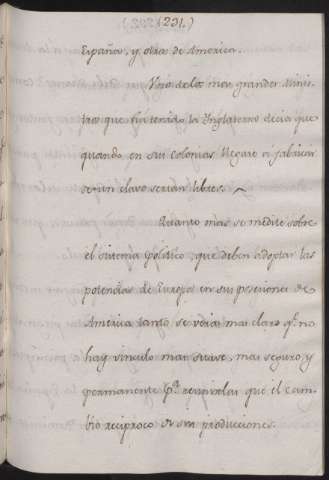 (231.)
España, y otra de America.
Uno de los mas grandes Minis
tros que ha tenido la Inglaterra decia que
quando en sus Colonias llegare a fabricar
se un clavo serian libres.
Quanto mas se medite sobre
el sistema politico, que deben adoptar las
potencias de Europa en sus posesiones de
America tanto se verá mas claro qe. no
hay vinculo mas suave, mas seguro, y
permanente pa. reunirlas que el cam
bio reciproco de sus producciones.